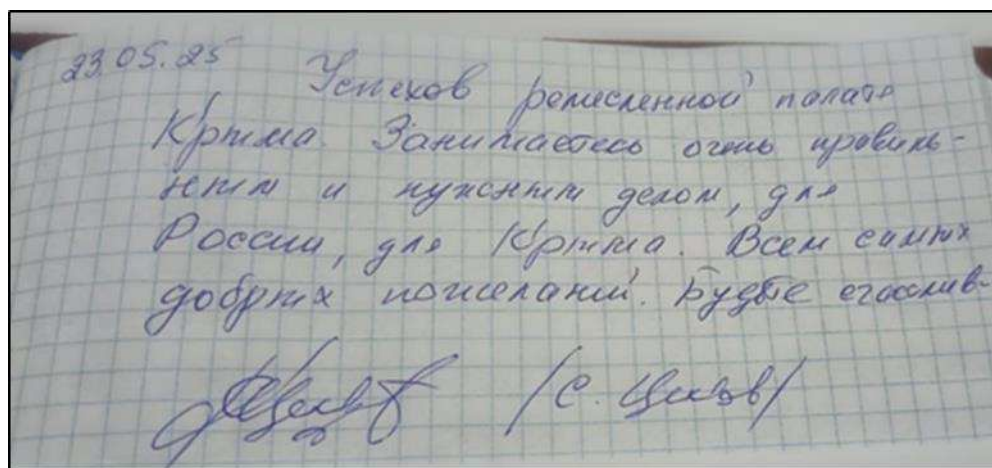 23.05.25 Успехов ремесленной палате
Крыма. Занимаетесь очень правиль-
ным и нужным делом, для
России, для Крыма. Всем самых
добрых пожеланий. Будьте счастлив-
/С. Цицов/